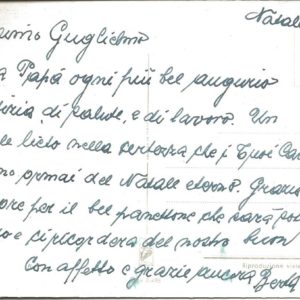 Natale
simo Guglielmo
a Papà ogni più bel augurio
di salute, e di lavoro. Un
lieto nella certezza che i Tuoi Cari
no ormai del Natale eterno. Grazie
ore per il bel panettone che sarà po
o e ci ricorderà del nostro buon
Con affetto e grazie ancora
Riproduzione